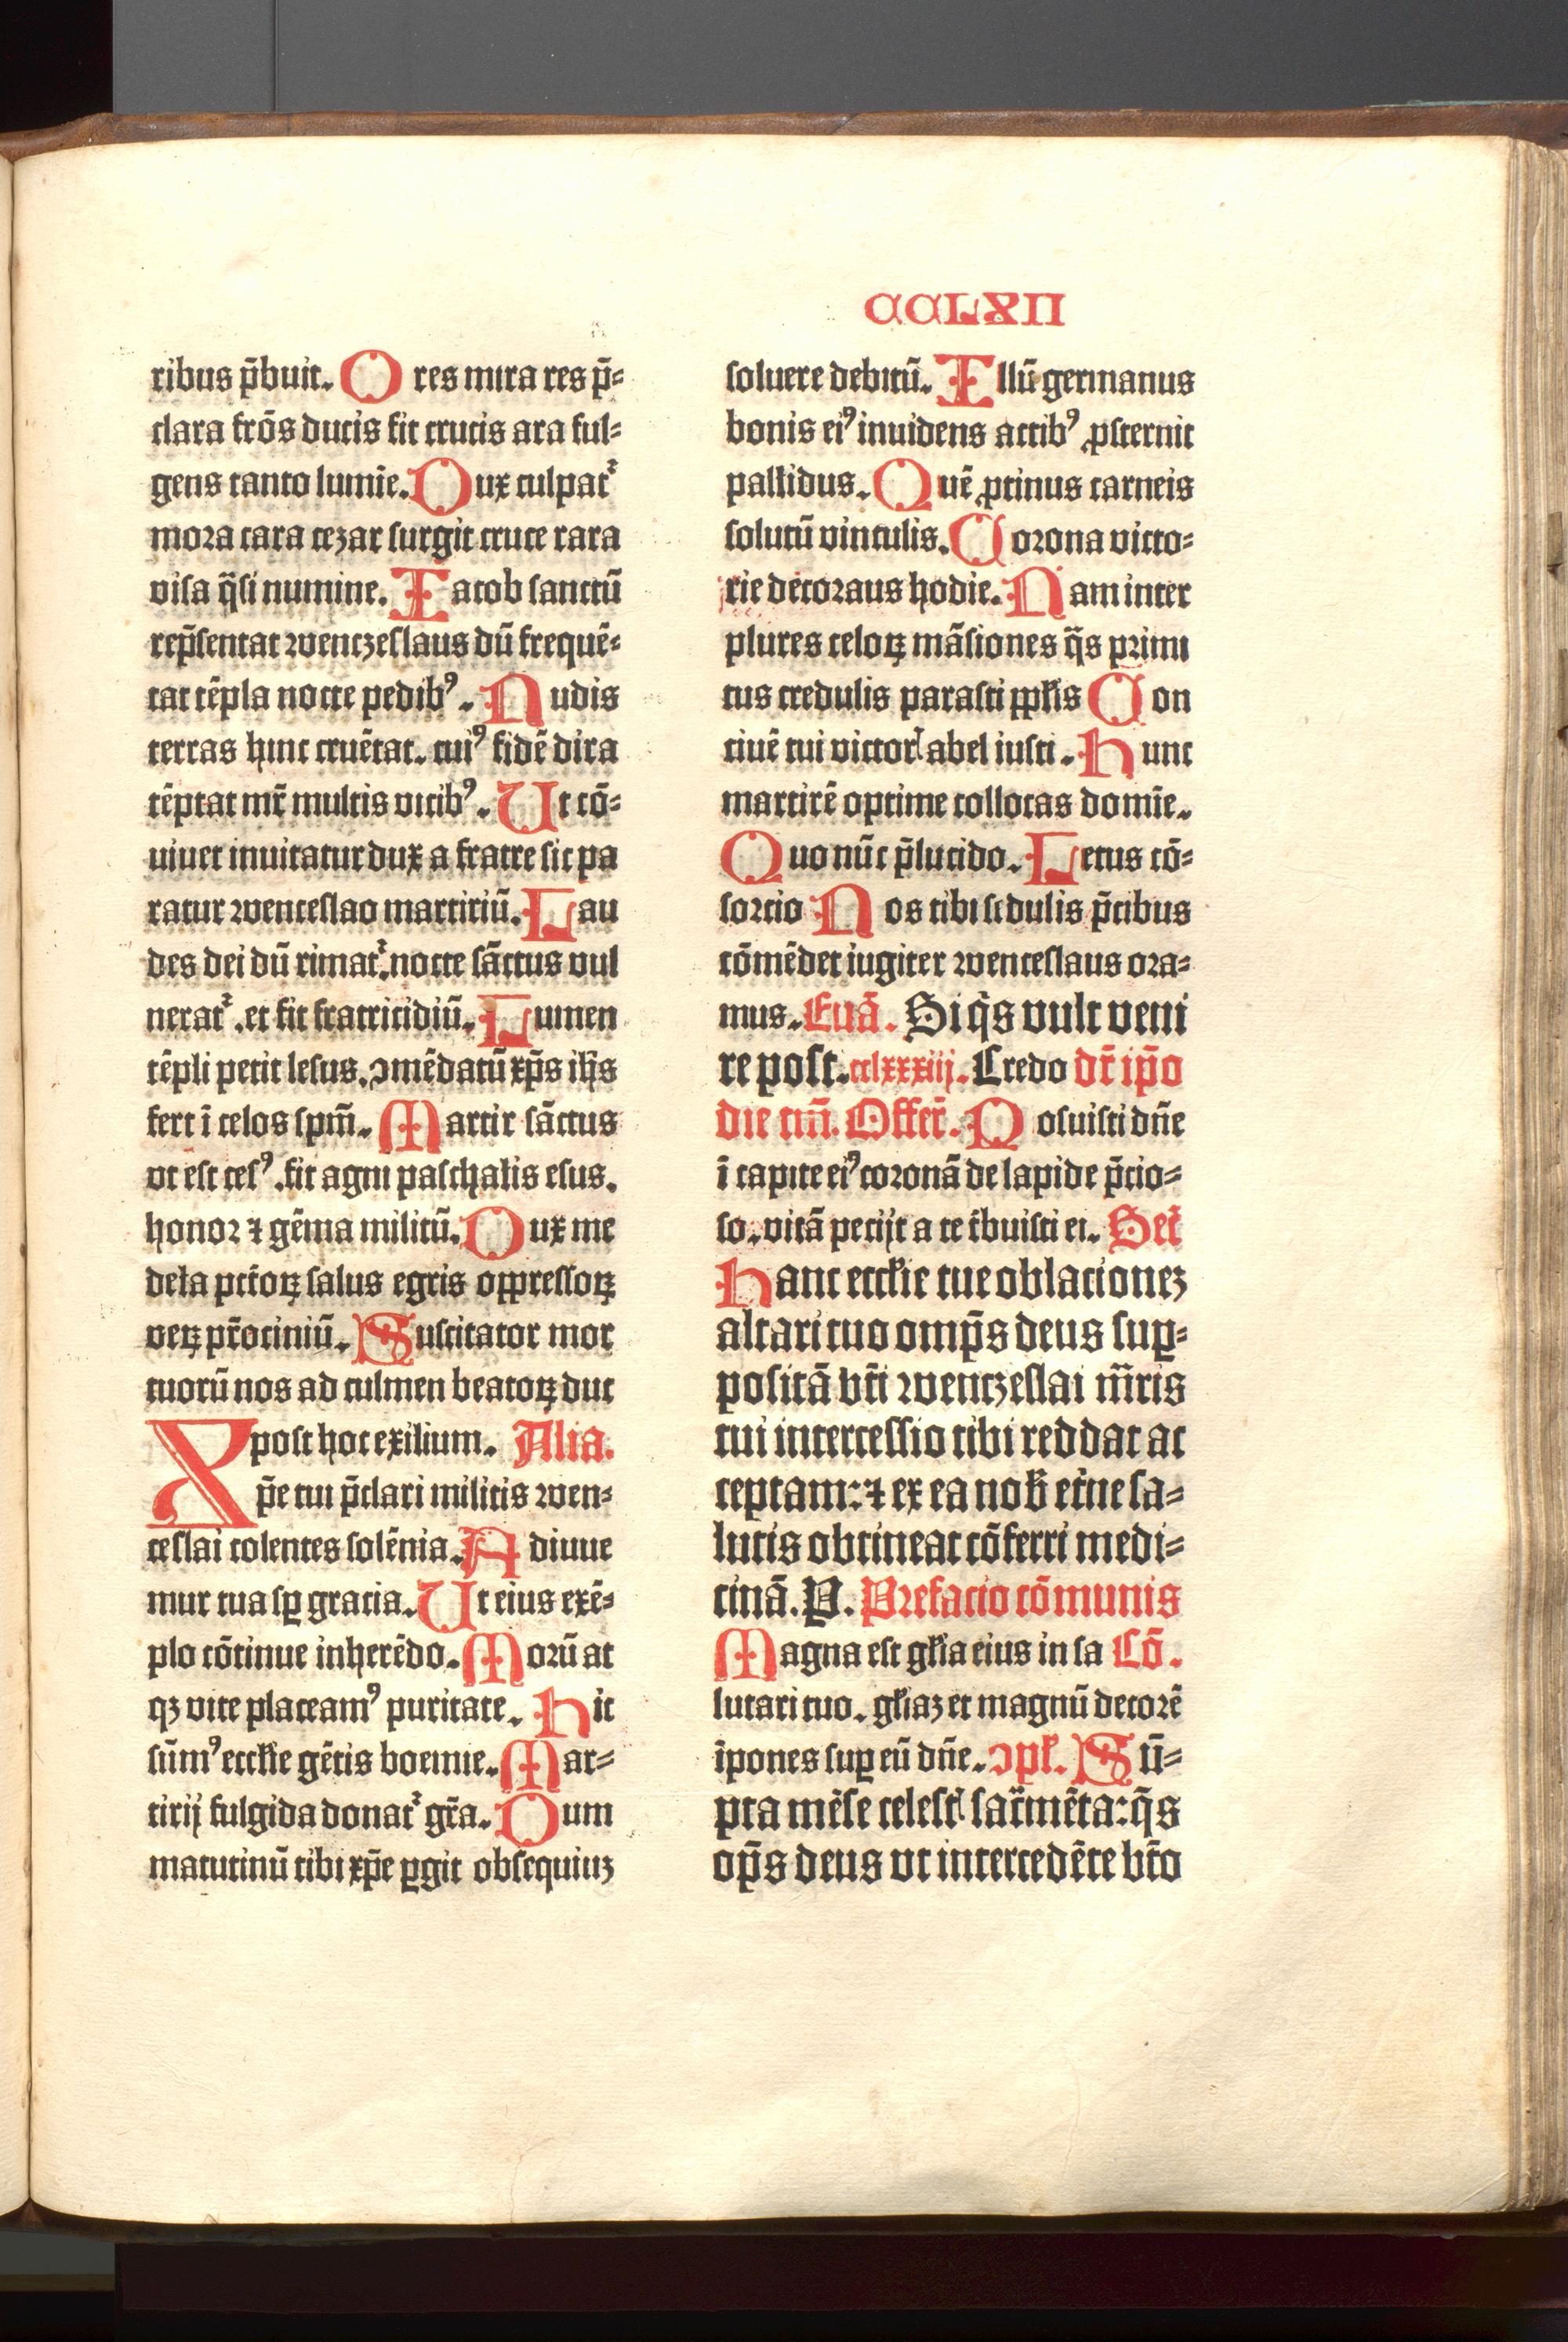 CCLXII
ribus p̄buit. O res mira res p̄⸗
clara frōs ducis fit crucis ara ful⸗
gens tanto lumīe. Dux culpat᷑
mora cara cezar surgit cruce rara
visa q̄si numine. Iacob sanctū
rep̄sentat wenczeslaus dū frequē⸗
tat tēpla nocte pedibꝰ. Nudis
terras hinc cruētat. cuiꝰ fidē dira
tēptat mr̄ multis vicibꝰ. Ut cō⸗
uiuet inuitatur dux a fratre sic pa
ratur wenceslao martiriū. Lau
des dei dū rimat᷑. nocte sāctus vul
nerat᷑. et fit fratricidiū. Lumen
tēpli petit lesus. ꝯmēdatū xp̄s ih̄s
fert ī celos spm̄. Martir sāctus
vt est cesꝰ. fit agni paschalis esus.
honor ⁊ gēma militū. Dux me
dela pctōꝝ salus egris oppressoꝝ
veꝝ pr̄ociniū. Suscitator mor
tuorū nos ad culmen beatoꝝ duc
post hoc exilium. Alia.
Xp̄e tui p̄clari militis wen⸗
ceslai colentes solēnia. Adiuue
mur tua sꝑ gracia. Ut eius exē⸗
plo cōtinue inherēdo. Morū at
qꝫ vite placeamꝰ puritate. Hic
sūmꝰ eccl̄ie gētis boemie. Mar⸗
tirij fulgida donat᷑ gr̄a. Dum
matutinū tibi xp̄e ꝑgit obsequiuꝫ
soluere debitū. Illū germanus
bonis eiꝰ inuidens actibꝰ ꝓsternit
pallidus. Quē ꝓtinus carneis
solutū vinculis. Corona victo⸗
rie decoraus hodie. Nam inter
plures celoꝝ māsiones q̄s primi
tus credulis parasti ꝓpl̄is Con
ciuē tui victorꝭ abel iusti. Hunc
martirē optime collocas domīe.
Quo nūc p̄lucido. Letus cō⸗
sorcio Nos tibi sedulis p̄cibus
cōmēdet iugiter wenceslaus ora⸗
mus. Euā. Si q̄s vult veni
re post. cclxxxiij. Credo dr̄ ip̄o
die tm̄. Offer̄. Posuisti dn̄e
ī capite eiꝰ coronā de lapide p̄cio⸗
so. vitā petijt a te t̄buisti ei. Secr̄
Hanc eccl̄ie tue oblacionez
altari tuo omp̄s deus suꝑ⸗
positā bt̄i wenczeslai m̄ris
tui intercessio tibi reddat ac
ceptam: ⁊ ex ea nob̄ et̄ne sa⸗
lutis obtineat cōferri medi⸗
cinā. P. Prefacio cōmunis
Magna est gl̄ia eius in sa Cō.
lutari tuo. gl̄iaꝫ et magnū decorē
īpones suꝑ eū dn̄e. ꝯpl̄. Sū⸗
pta mēse celestꝭ sacr̄mēta: q̄s
op̄s deus vt intercedēte bt̄o